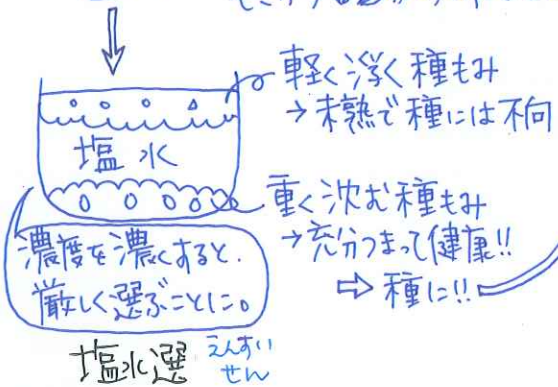 軽く浮く種もみ
→未熟で種には不向
塩水
重く沈む種もみ
→充分つまって健康!!
⇨種に!!
濃度を濃くすると、
厳しく選ぶことに。
塩水選 えんすい
せん